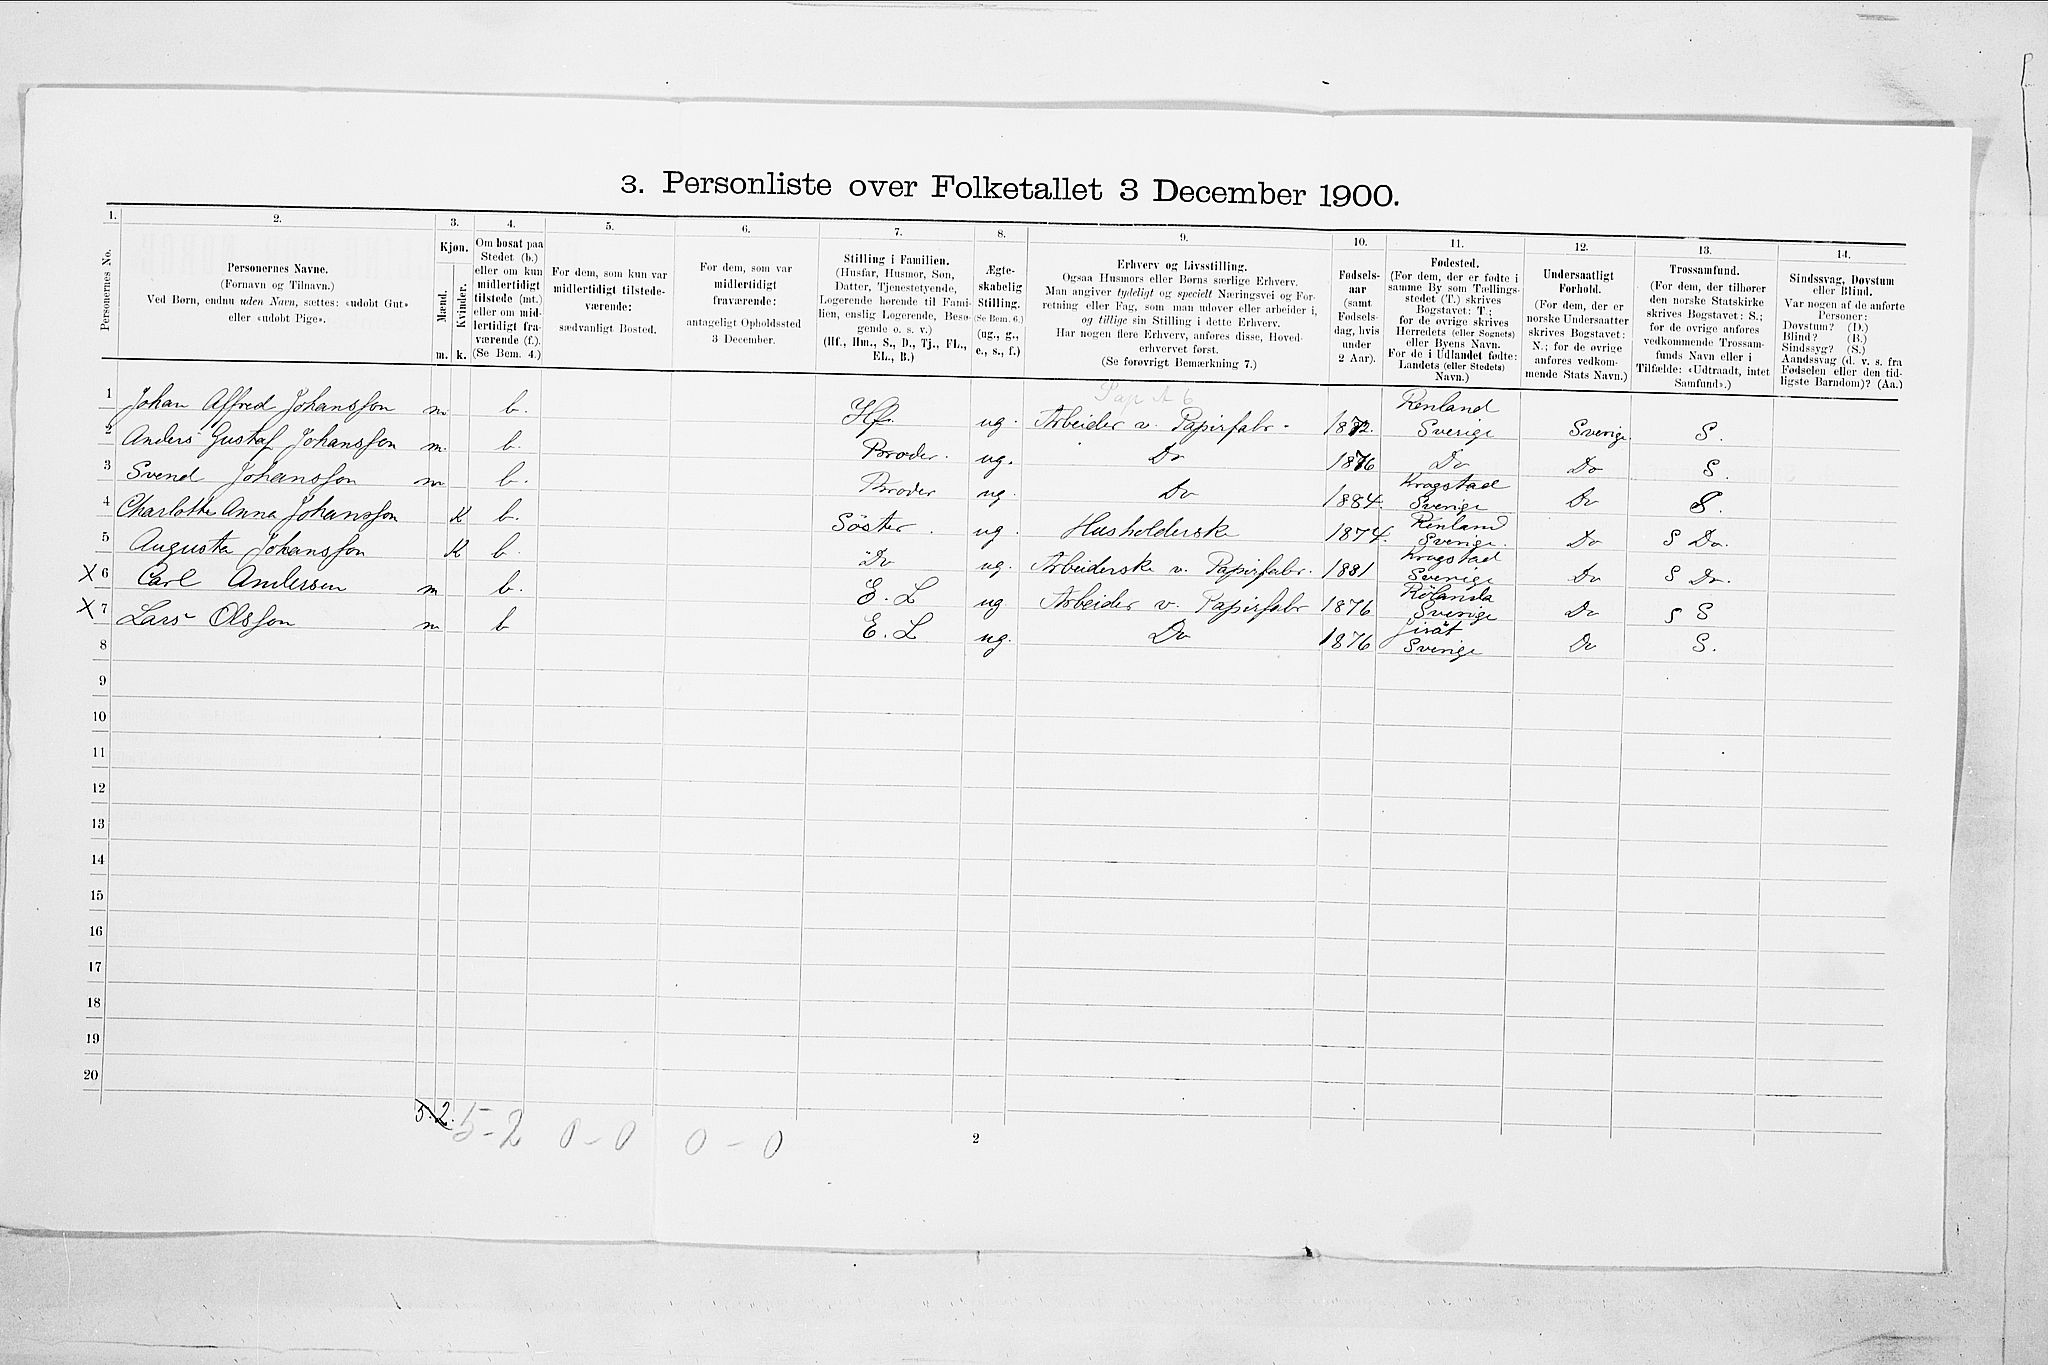 3. Personliste over Folketallet 3 December 1900.
1. 2. 3. 4. 5. 6. 7. 8. 9. 10. 11. 12. 13. 14.
Personernes No.
Personernes Navne.
(Fornavn og Tilnavn.)
Ved Børn, endnu uden Navn, sættes: «udøbt Gut»
eller «udøbt Pige».
Kjøn.
Mænd.
Kvinder.
m. k.
Om bosat paa
Stedet (b.)
eller om kun
midlertidigt
tilstede (mt.)
eller om mid-
lertidigt fra-
værende (f.).
(Se Bem. 4.)
For dem, som kun var
midlertidigt tilstede-
værende:
sædvanligt Bosted.
For dem, som var
midlertidigt
fraværende:
antageligt Opholdssted
3 December.
Stilling i Familien.
(Husfar, Husmor, Søn,
Datter, Tjenestetyende,
Logerende hørende til Fami-
lien, enslig Logerende, Besø-
gende o. s. v.)
(Hf., Hm., S., D., Tj., FL.,
EL., B.)
Ægte-
skabelig
Stilling.
(Se Bem. 6.)
(ug., g.,
e., s., f.)
Erhverv og Livsstilling.
Ogsaa Husmors eller Børns særlige Erhverv.
Man angiver tydeligt og specielt Næringsvei og For-
retning eller Fag, som man udøver eller arbeider i,
og tillige sin Stilling i dette Erhverv.
Har nogen flere Erhverv, anføres disse, Hoved-
erhvervet først.
(Se forøvrigt Bemærkning 7.)
Fødsels-
aar
(samt
Fødsels-
dag, hvis
under
2 Aar).
Fødested.
(For dem, der er fødte i
samme By som Tællings-
stedet (T.) skrives
Bogstavet: T.;
for de øvrige skrives
Herredets (eller Sognets)
eller Byens Navn.
For de i Udlandet fødte:
Landets (eller Stedets)
Navn.)
Undersaatligt
Forhold.
(For dem, der er
norske Undersaatter
skrives Bogstavet:
N.; for de øvrige
anføres vedkom-
mende Stats Navn.)
Trossamfund.
(For dem, der tilhører
den norske Statskirke
skrives Bogstavet: S.;
for de øvrige anføres
vedkommende Trossam-
funds Navn eller i
Tilfælde: «Udtraadt, intet
Samfund».)
Sindssvag, Døvstum
eller Blind.
Var nogen af de anførte
Personer:
Døvstum? (D.)
Blind? (B.)
Sindssyg? (S.)
Aandssvag (d. v. s. fra
Fødselen eller den tid-
ligste Barndom)? (Aa.)
1 Johan Alfred Johansson m b. Hf. ug. Arbeider v. Papirfabr. 1872. Renland Sverige Sverige S.
2 Anders Gustaf Johansson m. b. Broder. ug. Do 1876 Do Do S.
3 Svend Johansson m b. Broder ug. Do 1884. Krogstad Sverige Do S.
4 Charlotte Anna Johansson K b. Søster. ug. Husholderske 1874. Renland Sverige. Do S Do.
5 Augusta Johansson K b. Do ug. Arbeiderske v. Papirfabr. 1881 Krogstad Sverige Do S Do.
X 6 Carl Andersen m b. E. L ug Arbeider v. Papirfabr 1876 Rölanda Sverige Do S S
X 7 Lars Olsson m b E. L ug. Do 1876 Sverige Do S.
8
9
10
11
12
13
14
15
16
17
18
19
20
5. 2. 5-2 0-0 0-0
2